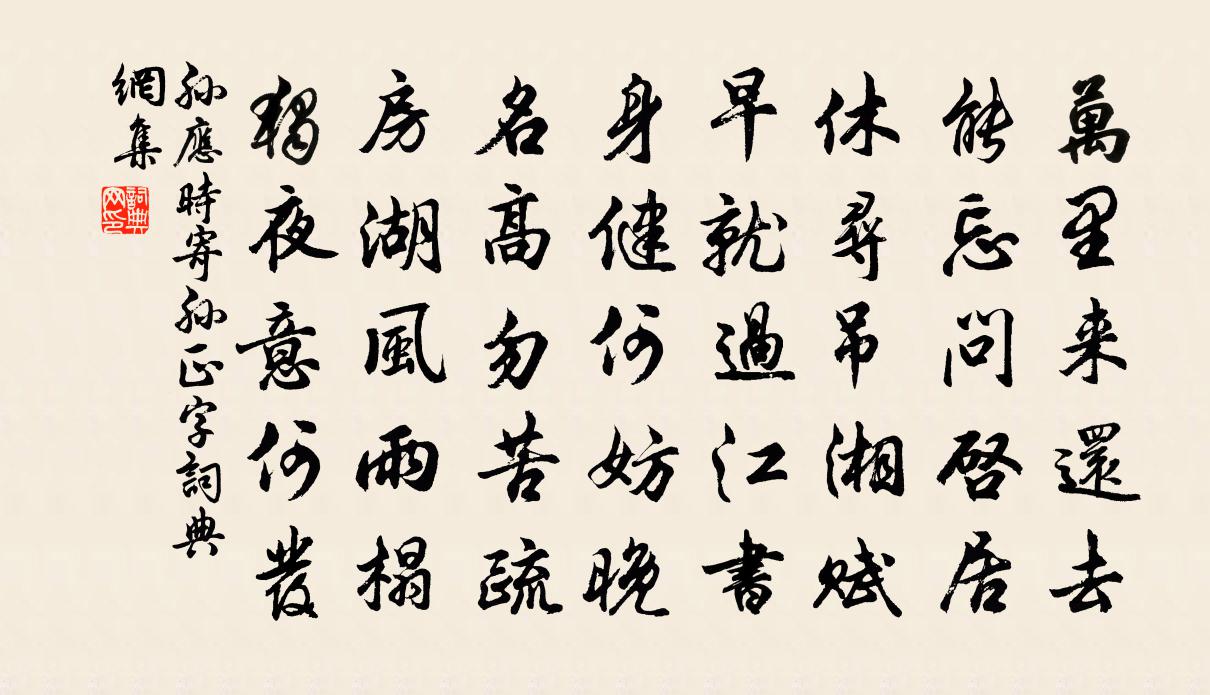 萬里来還去
能忘問啓居
休尋吊湘賦
早就過江書
身健何妨晚
名高勿苦疏
房湖風雨榻
獨夜意何發
孫應時寄孫正字詞典
網集
詞典
网